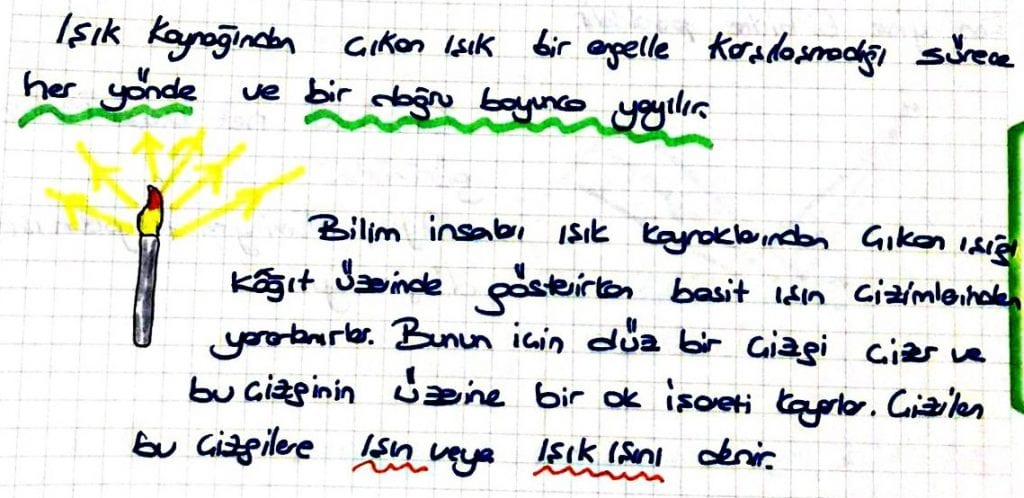 Işık kaynağından çıkan ışık bir engelle karşılaşmadığı sürece
her yönde ve bir doğru boyunca yayılır.
Bilim insanları ışık kaynaklarından çıkan ışığı
kâğıt üzerinde gösterirken basit ışın çizimlerinden
yararlanırlar. Bunun için düz bir çizgi çizer ve
bu çizginin üzerine bir ok işareti koyarlar. Çizilen
bu çizgilere ışın veya ışık ışını denir.